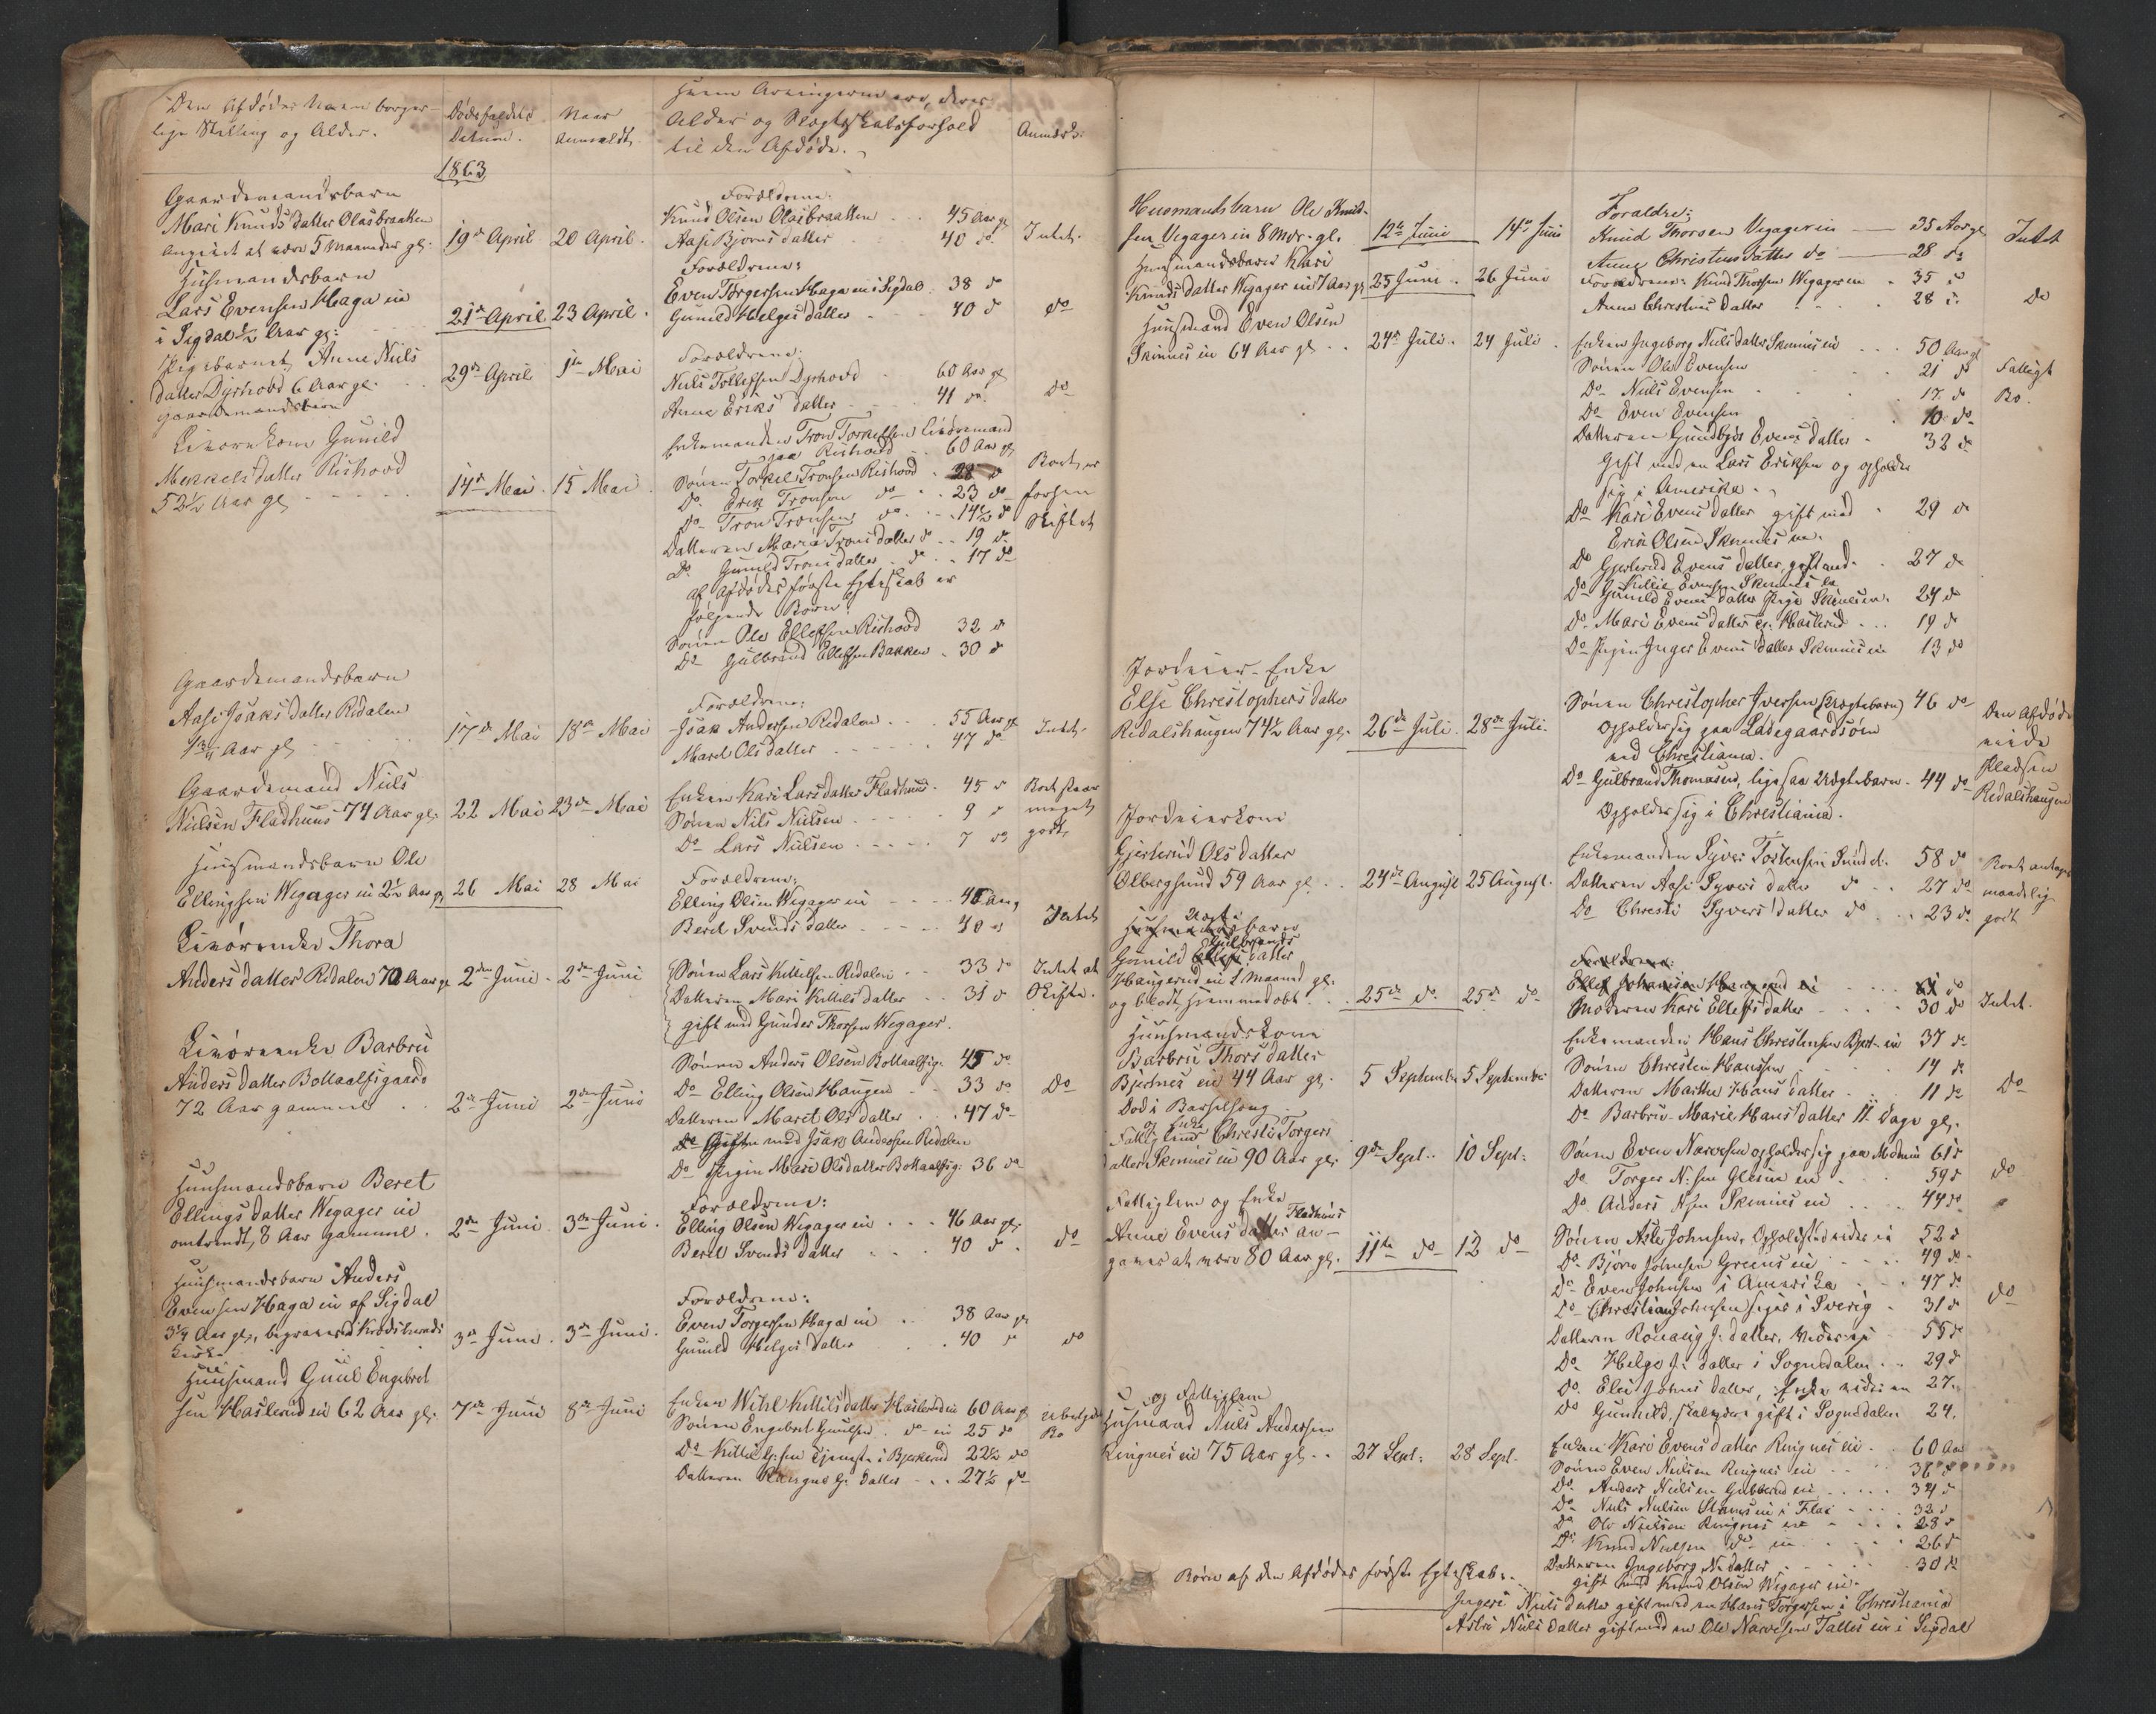 Den Afdødes Navn borger-
lige Stilling og Alder.
Dødsfaldets
Datum.
Naar
anmeldt.
Hvem Arvingerne ere, deres
Alder og Slægtskabsforhold
til den Afdøde.
Anmærk:
1863
Gaardemandsbarn
Mari Knuds datter Olasbraatten
angivet at være 5 Maaneder gl.
19de April 20 April.
Forældrene:
Knud Olsen Olasbraatten 45 Aar gl
Aase Bjørns datter 40 do
Intet.
Huusmandsbarn
Lars Evensen Haga eie
i Sigdal ½ Aar gl:
21de April 23 April.
Forældrene:
Even Torgersen Haga eie i Sigdal 38 d
Gunild Helges datter 40 d
do
Pigebarnet Anne Niels
datter Dyrhovd 6 Aar gl.
gaardemandsbarn
29de April 1ste Mai
Forældrene:
Niels Tollefsen Dyrhovd 60 Aar gl
Anne Eriks datter 41 do
do
Livørekone Gunild
Mekkels datter Rishovd
52½ Aar gl
14de Mai. 15 Mai
Enkemanden Tron Torkelsen Livøremand
paa Rishovd 60 Aar gl
Sønnen Torkel Tronsen Rishovd 28 d
Do Erik Tronsen do 23 do
Do Tron Tronsen do 14½ d
Datteren Maria Trons datter d 19 d
Do Gunild Trons datter d 17 do
af afdødes første Egteskab er
følgende Børn:
Sønnen Ole Ellefsen Rishovd 32 d
Do Gulbrand Ellefsen Bakken 30 d
Boet er
forhen
Skiftet
Gaardemandsbarn
Aase Isaks datter Redalen
Aar gl
17de Mai 18de Mai
Forældrene:
Isak Andersen Redalen 55 Aar gl
Maret Ols datter 47 do
Intet.
Gaardemand Niels
Nielsen Fladhuus 74 Aar gl.
22 Mai 23de Mai
Enken Kari Lars datter Fladhuus 45 d
Sønnen Nils Nielsen 9 d
Do Lars Nielsen 7 do
Boet staar
meget
godt,
Huusmandsbarn Ole
Ellingsen Wegager eie 2½ Aar gl
26 Mai 28 Mai
Forældrene:
Elling Olsen Wegager eie 46 Aar
Beret Svends datter 40 d
Intet
Livørenke Thora
Anders datter Redalen 70 Aar gl
2den Juni 2den Juni
Sønnen Lars Kittilsen Redalen 33 d
Datteren Mari Kittils datter 31 d
gift med Gunder Thorsen Wegager.
Intet at
Skifte.
Livørenke Barbru
Anders datter Bottolfsgaard
72 Aar gammel
2de Juni 2den Juni
Sønnen Anders Olsen Bottolfsg. 45 do
Do Elling Olsen Haugen 33 do
Datteren Maret Ols datter 47 do
Gift med Isak Andersen Redalen
Do Pigen Mari Olsdatter Bottolfsg. 36 do
Do
Huusmandsbarn Beret
Ellings datter Wegager eie
omtrendt 8 Aar gammel.
2de Juni 3de Juni.
Forældrene:
Elling Olsen Wegager eie 46 Aar gl.
Beret Svends datter 40 d
do
Huusmandsbarn Anders
Evensen Haga eie af Sigdal
3¼ Aar gl., begravet ved Krødsherreds
Kirke
3de Juni. 3de Juni.
Forældrene:
Even Torgersen Haga eie 38 Aar gl
Gunild Helges datter 40 d
do
Huusmand Guul Engebret
sen Haslerud eie 62 Aar gl.
7de Juni 8de Juni
Enken Kittilsdatter Haslerud eie 60 Aar gl
Sønnen Engebret Guulsen do eie 25 do
Do Kittil G:sen tjeneste i Bjerkerud 22½ do
Datteren G: datter 27½ do
Bo
Huusmandsbarn Ole Knud-
sen Vegager eie 8 Mdr. gl.
12te Juni 14de Juni
Foraldre:
Knud Thorsen Vegager eie 35 Aar gl
Anne Christens datter do 28 do
Intet
Huusmandsbarn Kari
Knuds datter Wegager eie 7 Aar gl
25 Juni. 26 Juni
Forældrene: Knud Thorsen Wegager eie 35 d
Anne Christens datter 28 d.
do
Huusmand Even Olsen
Skinnes eie 64 Aar gl.
24de Juli. 24 Juli.
Enken Ingeborg Niels datter Skinnes eie 50 Aar gl
Sønnen Ole Evensen 21 d
Do Niels Evensen 17. d
Do Even Evensen 10. do
Datteren Guldbjør Evens datter 32 d
Gift med en Lars Eriksen og opholder
sig i Amerika.
Do Kari Evens datter gift med 29 d
Erik Olsen Skinnes eie.
Do Gjertrud Evens datter, gift med 27 d
Kittil Evensen Skinnes eie
Do Gunild Evens datter Pige Skinnes eie 24 d
Do Mari Evens datter Haslerud 19 d
Do Pigen Inger Evens datter Skinnes eie 13 do
Fattigt
Bo.
Jordeier-Enke
Else Christophers datter
Redalshaugen 74½ Aar gl.
26de Juli. 28de Juli.
Sønnen Christopher Iversen (Uægtebarn) 46 do
opholder sig paa Ladegaardsøen
ved Christiania.
Do Gulbrand Thomasen, ligesaa Uægtebarn 44 do
Opholder sig i Christiania.
Den Afdøde
eiede
Pladsen
Redalshaugen
Jordeierkone
Gjertrud Ols datter
Olbergsund 59 Aar gl.
24de August 25 August.
Enkemanden Syver Tostensen Sund eie 58 d
Datteren Aase Syvers datter d 27 do
Do Christi Syvers datter do 23 do
Boet antages
maadelig
godt
Uægte
Huusmandsbarn
Gulbrands
Gunild Ellefs datter
Haugerud eie 1 Maaned gl.
og blodt hjemmedøbt
25de do 25de do
Forældrene:
Ellef Johansen Haugerud eie
Moderen Kari Ellefs datter 30 do
Intet.
Huusmandskone
Barbru Thors datter
Bjertnes eie 44 Aar gl.
Død i Barselseng
5 September 5 September
Enkemanden Hans Christensen Bjert. eie 37 do
Sønnen Christen Hanssen 14 d
Datteren Marthe Hans datter 11 do
Do Barbru Marie Hans datter 11 Dage gl.
Do
og Enke
Fattiglem Christi Torgers
datter Skinnes eie 90 Aar gl.
9de Sept. 10 Sept.
Sønnen Even Narvesen opholder sig paa Modum 61 d
Do Torger N:sen Glesne eie 59 d
Do Anders N:sen Skinnes eie 44 do
do
Fattiglem og Enke
Fladhuus
Anne Evens datter an-
gaves at være 80 Aar gl.
11te do 12 do
Sønnen Asle Johnsen, 52 d
Do Bjørn Johnsen Grønnes eie 49 do
Do Even Johnsen i Amerika 47 do
Do Christian Johnsen Siges i Sverig 31 d
Datteren Rønnaug J: datter, 55 d
Do Helge J: datter i Sognedalen 29 d
Do Eli Johns datter, Enke 27.
Do Gunhild, skal være gift i Sognedalen 24.
do
og Fattiglem
Huusmand Niels Andersen
Ringnes eie 75 Aar gl.
27 Sept. 28 Sept.
Enken Kari Evens datter Ringnes eie 60 Aar
Sønnen Even Nielsen Ringnes eie 36 d
Do Anders Nielsen Gubberud eie 34 d
Do Niels Nielsen eie i Flaa 32 d
Do Ole Nielsen Ringnes eie 28 d
Do Knud Nielsen do eie 26 d
Datteren Ingeborg N. datter 30 do
gift med Knud Olsen Wegager eie.
Børn af den Afdødes første Egteskab.
Ingeri Niels datter gift med en Hans Torgersen i Christiania
Astri Niels datter gift med en Ole Narvesen eie i Sigdal